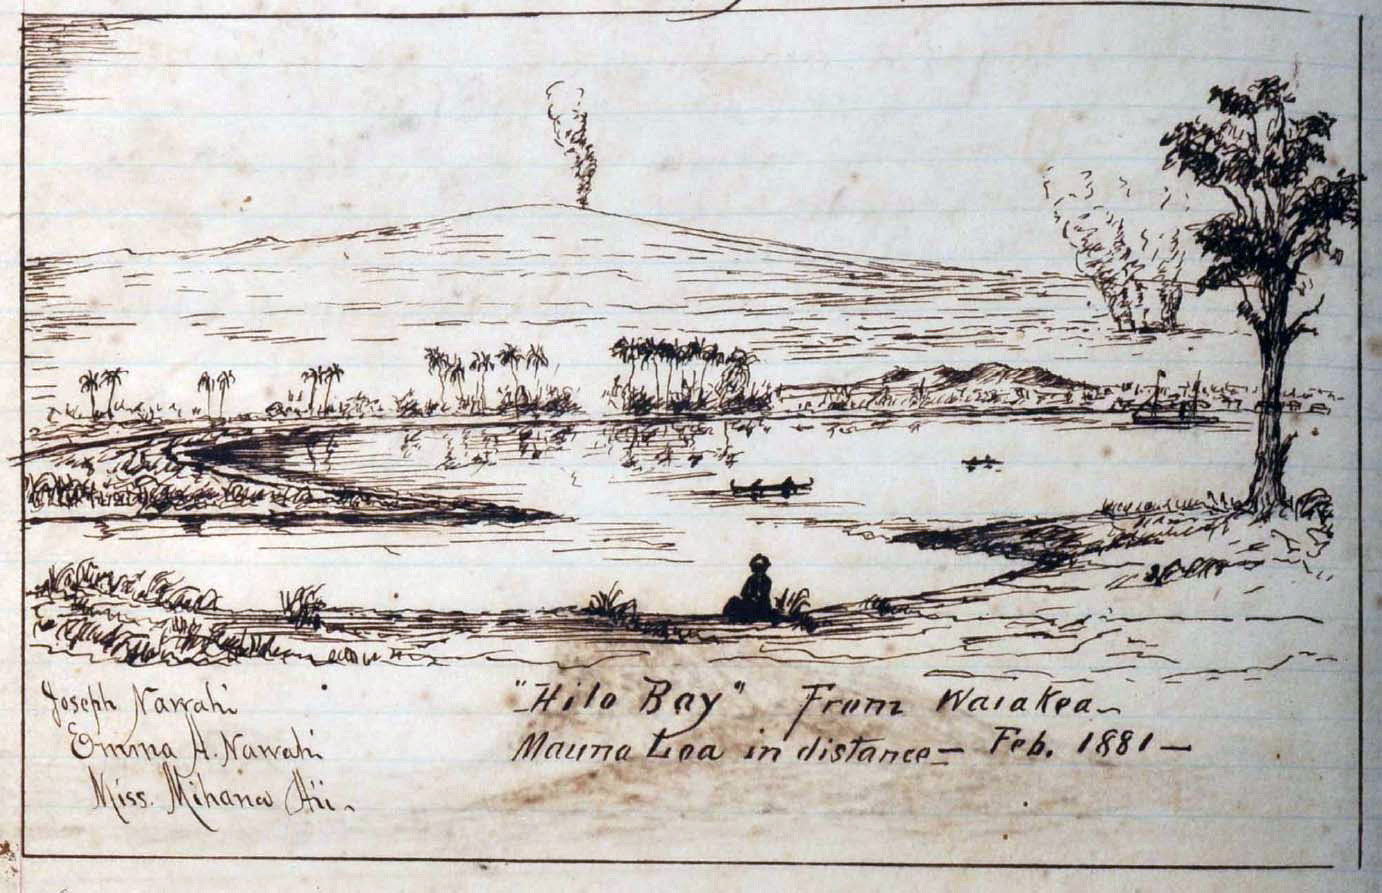 Joseph Nawahi
Emma A. Nawahi
Miss. Mihana Aii
"Hilo Bay" From Waiakea
Mauna Loa in distance — Feb. 1881 —